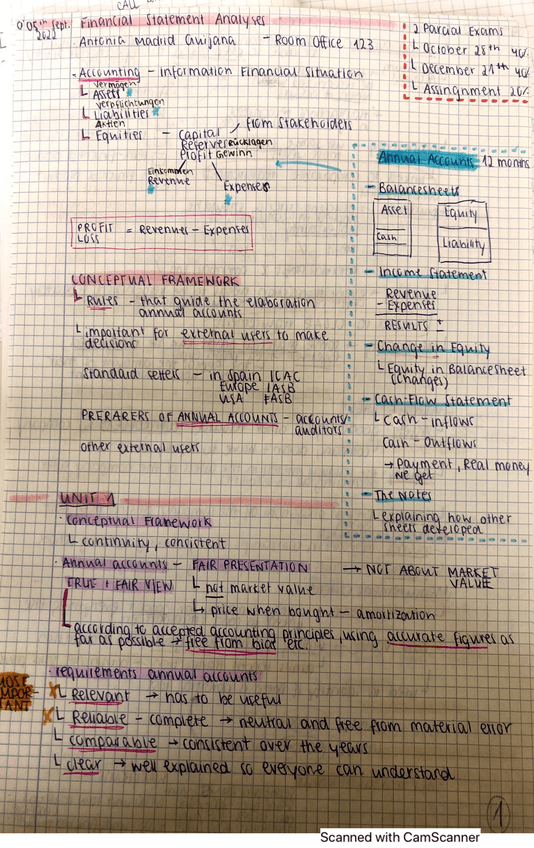 CALL
Financial Statement Analyses
05th Sept. 2022
Antonia Madrid Guijana – Room Office 123
2 Parcial Exams
October 28th 40%
December 21th 40%
Assingnment 20%
Accounting – Information Financial Situation
Vermögen
Assets
Verpflichtungen
Liabilities
Aktien
Equities – Capital / from Stakeholders
Reserves Rücklagen
Profit Gewinn
Einkommen
Revenue
Expenses
PROFIT = Revenues – Expenses
LOSS
Annual Accounts 12 months
– Balancesheets
Asset
Equity
Cash
Liability
– Income Statement
Revenue
– Expenses
RESULTS ±
– Change in Equity
Equity in Balancesheet
(changes)
– Cash-Flow Statement
Cash-inflows
Cash-Outflows
→ Payment, Real money
we get
– The Notes
explaining how other
sheets developed
CONCEPTUAL FRAMEWORK
Rules – that guide the elaboration
annual accounts
important for external users to make
decisions
Standard setters – in Spain ICAC
Europe IASB
USA FASB
PRERARERS OF ANNUAL ACCOUNTS – accounts/
auditors
other external users
UNIT 1
· Conceptual Framework
continuity, consistent
· Annual accounts – FAIR PRESENTATION → NOT ABOUT MARKET
VALUE
TRUE + FAIR VIEW
not market value
price when bought – amoritization
according to accepted accounting principles, using accurate figures as
far as possible → free from bias etc.
· requirements annual accounts
MOST
IMPOR-
TANT
Relevant → has to be useful
Reliable – complete → neutral and free from material error
comparable → consistent over the years
clear → well explained so everyone can understand
1
Scanned with CamScanner